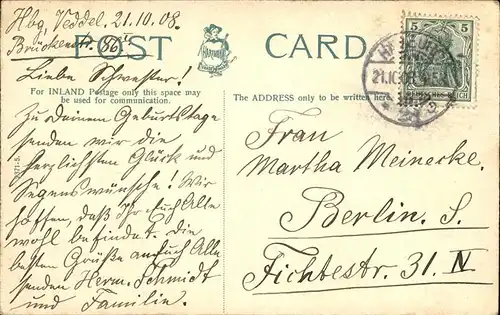 Hbg. Veddel. 21.10.08.
Brückenstr. 86
POST CARD
Liebe Schwester!
For INLAND Postage only this space may
be used for communication.
The ADDRESS only to be written here.
Zu Deinem Geburtstage
senden wir die
herzlichsten Glück und
Segenswünsche! Wir
hoffen, daß Ihr Euch Alle
wohl befindet. Die
besten Grüße an Euch Alle
senden Herm. Schmidt
und Familie.
5 5
DEUTSCHES REICH
21.10.08
Frau
Martha Meinecke.
Berlin. S.
Fichtestr. 31. IV